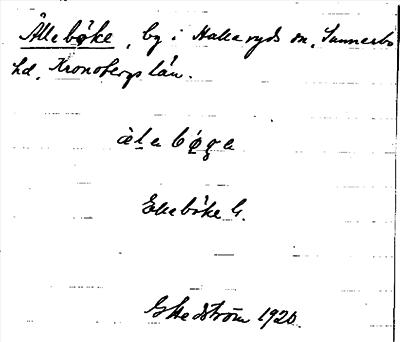 Ållebøke, by i Hallaryds sn, Sunnerbo
hd, Kronobergs län.
àlabǿga
Ellebøke G.
G Hedström 1920.